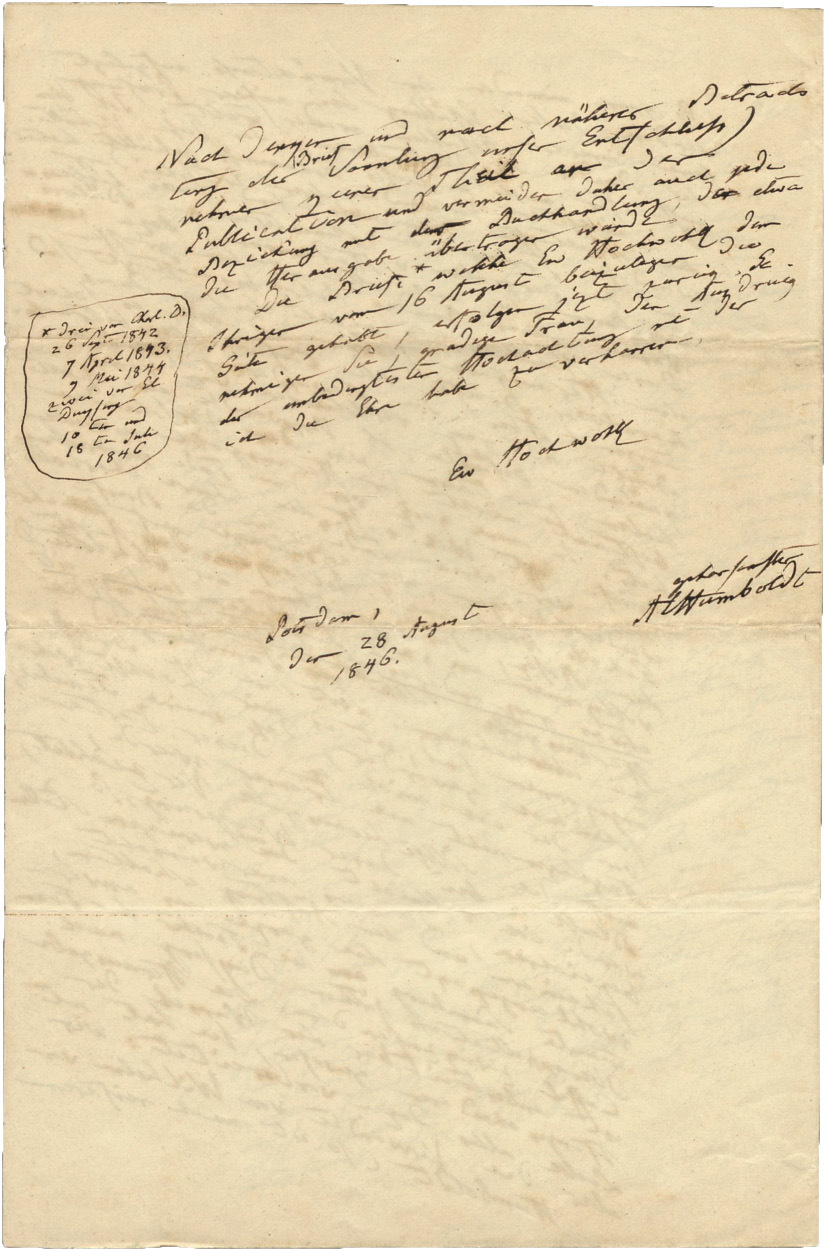 und nach näherer Betrach
tung der Brief Sammlung unser Entschluss)
nehmen Theil an der
Publication und vermeiden daher auch jede
Beziehung mit der Buchhandlung, der etwa
die Herausgabe übertragen würde
Die Briefe * welche Ew Hochwohl dem
Ihrigen vom 16 August beizulegen die
Güte gehabt, erfolgen jetzt zurück. Ge
nehmigen Sie, gnädige Frau, den Ausdruck
der unbedingtesten Hochachtung mit der
ich die Ehre habe zu verharren,
* drei von
26 Sept 1842
7 April 1843.
9 Mai 1844
zwei von
10 ten und
18 ten Juli
1846
Ew Hochwohl
gehorsamster
AlHumboldt
Potsdam,
den 28 August
1846.